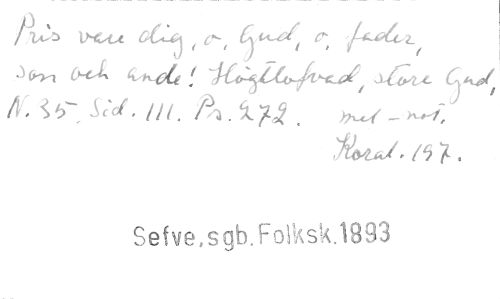 Pris vare dig, o, Gud, o, fader,
son och ande! Högtlofvad, store Gud,
N. 35, Sid. 111. Ps. 272. mel-not.
Koral. 197.
Sefve, sgb. Folksk. 1893